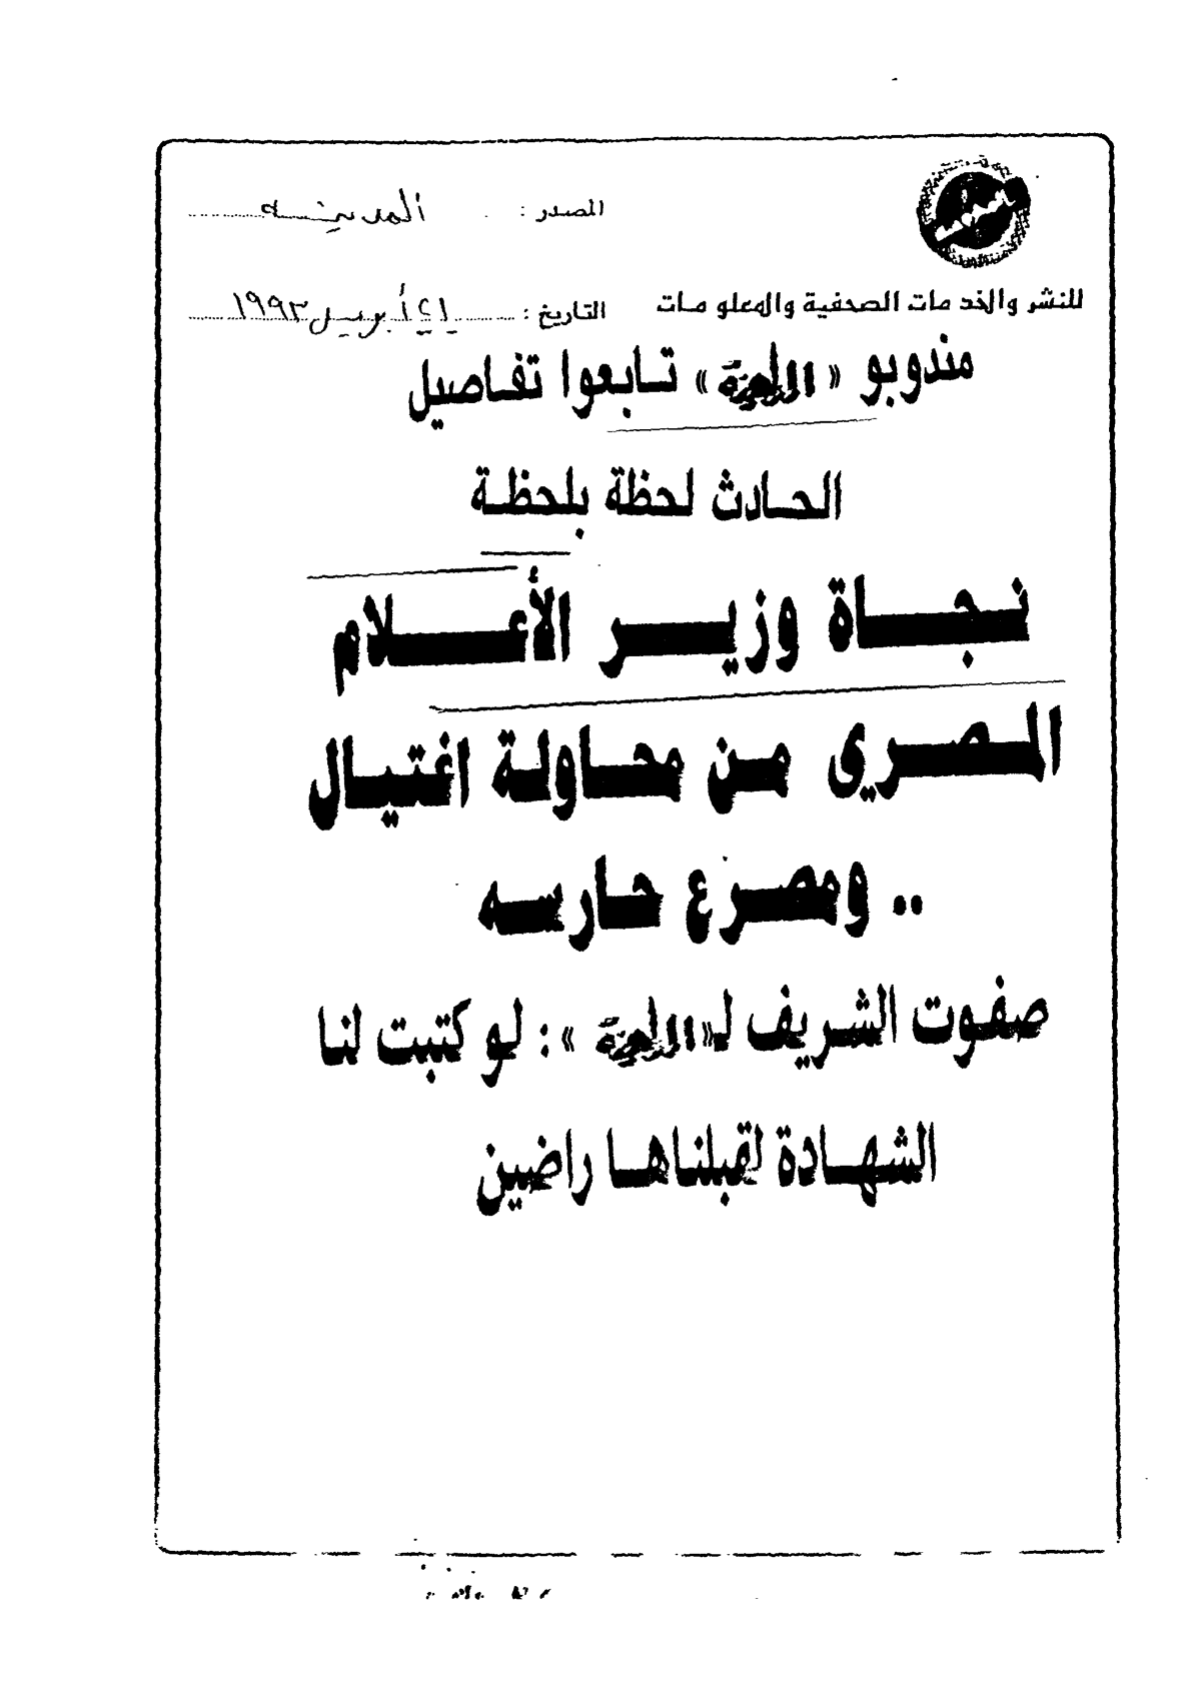 المصدر : المدينه
للنشر والخدمات الصحفية والمعلومات
التاريخ : ٢١ أبريل ١٩٩٣
مندوبو « المدينة » تابعوا تفاصيل
الحادث لحظة بلحظة
نجاة وزير الأعلام
المصرى من محاولة اغتيال
.. ومصرع حارسه
صفوت الشريف لـ« المدينة » : لو كتبت لنا
الشهادة لقبلناها راضين